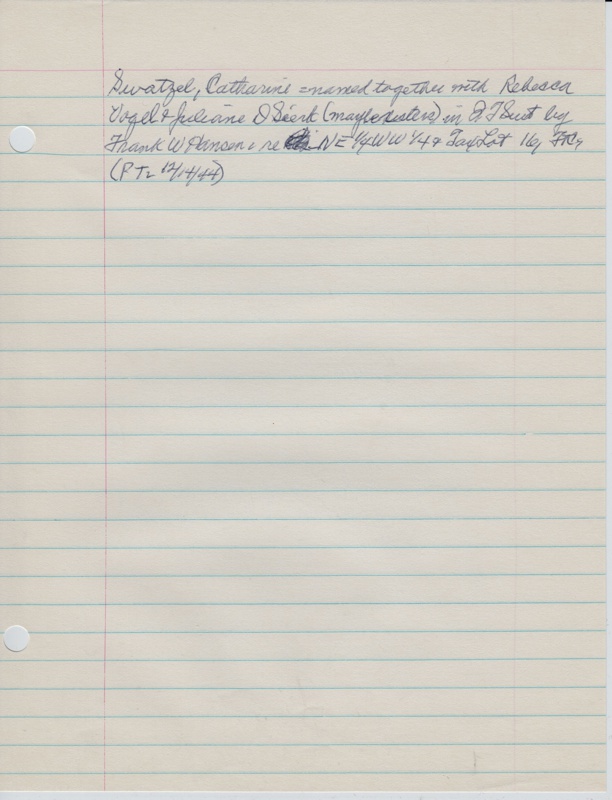 Swatzel, Catharine = named together with Rebecca
Vogel & Juliane D Sierk (maybe sisters) in QT Suit by
Frank W Hansen, re NE 1/4 NW 1/4 & Tax Lot 16,
(PT 12/14/44)